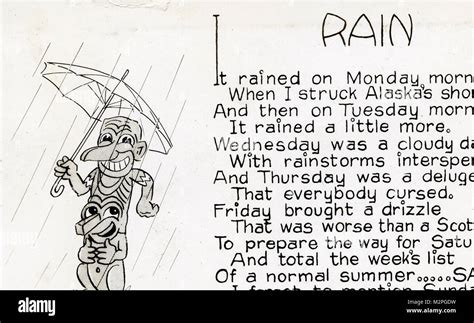 RAIN
It rained on Monday morn
When I struck Alaska's shor
And then on Tuesday morn
It rained a little more.
Wednesday was a cloudy da
With rainstorms interspe
And Thursday was a deluge
That everybody cursed.
Friday brought a drizzle
That was worse than a Scot
To prepare the way for Satu
And total the week's list
Of a normal summer.....SA
I forgot to mention Sunda
alamy stock photo
M2PGDW